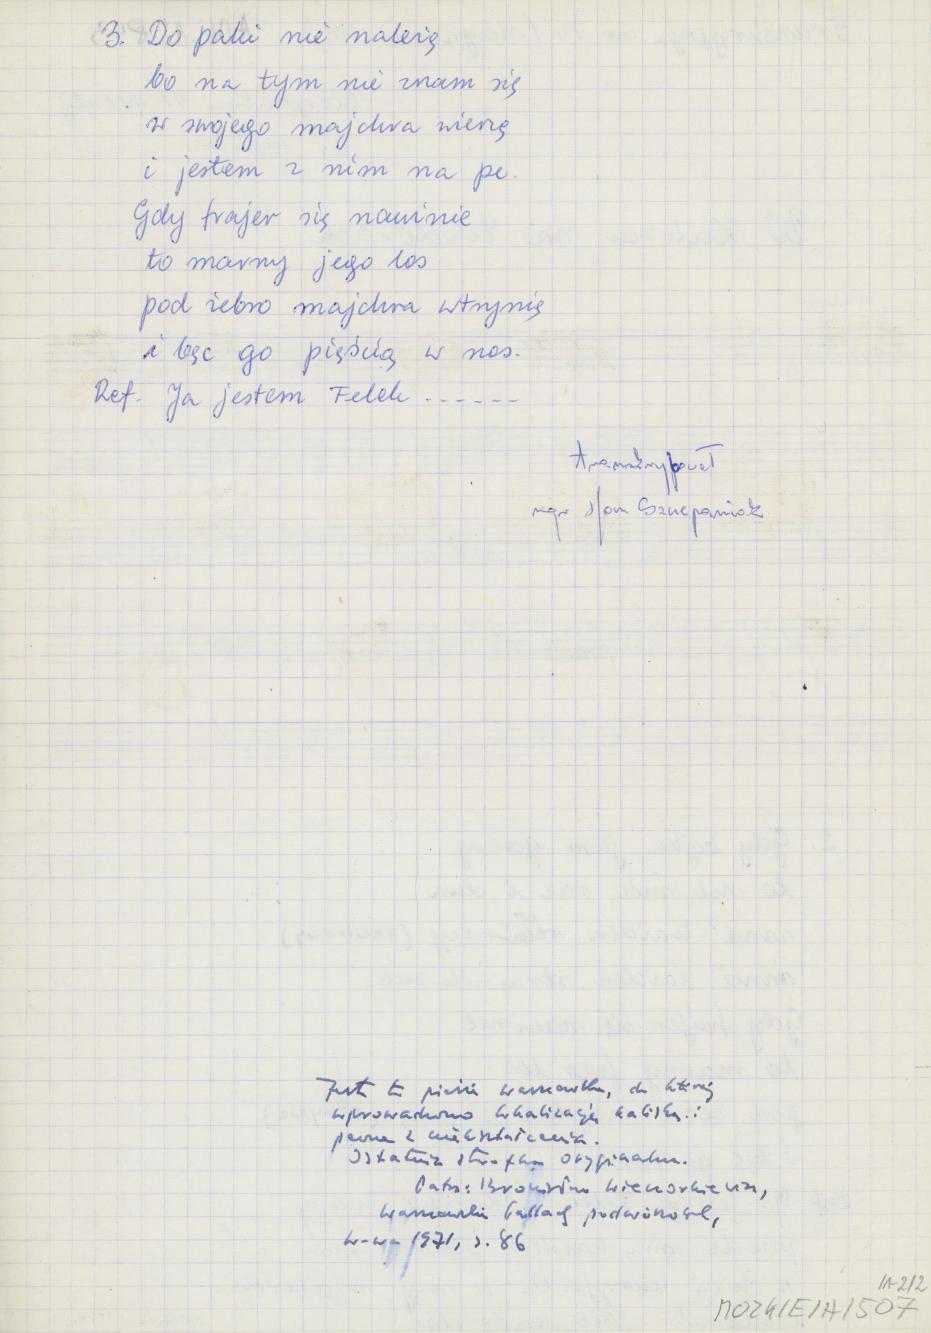 3. Do paki nie należę
bo na tym nie znam się
w swojego majchra wierzę
i jestem z nim na pe.
Gdy frajer się nawinie
to marny jego los
pod żebro majchra wtrynię
i bęc go pięścią w nos.
Ref. Ja jestem Felek ------
transkrybował
mgr Jan Szczepaniak
Jest to pieśń warszawska, do której
wprowadzono lokalizację kaliską i
pewne zniekształcenia.
Ostatnia strofka oryginalna.
Patrz: Bronisław Wieczorkiewicz,
Warszawskie ballady podwórzowe,
W-wa 1971, s. 86
IA-2/2
MOZK/E/A/507